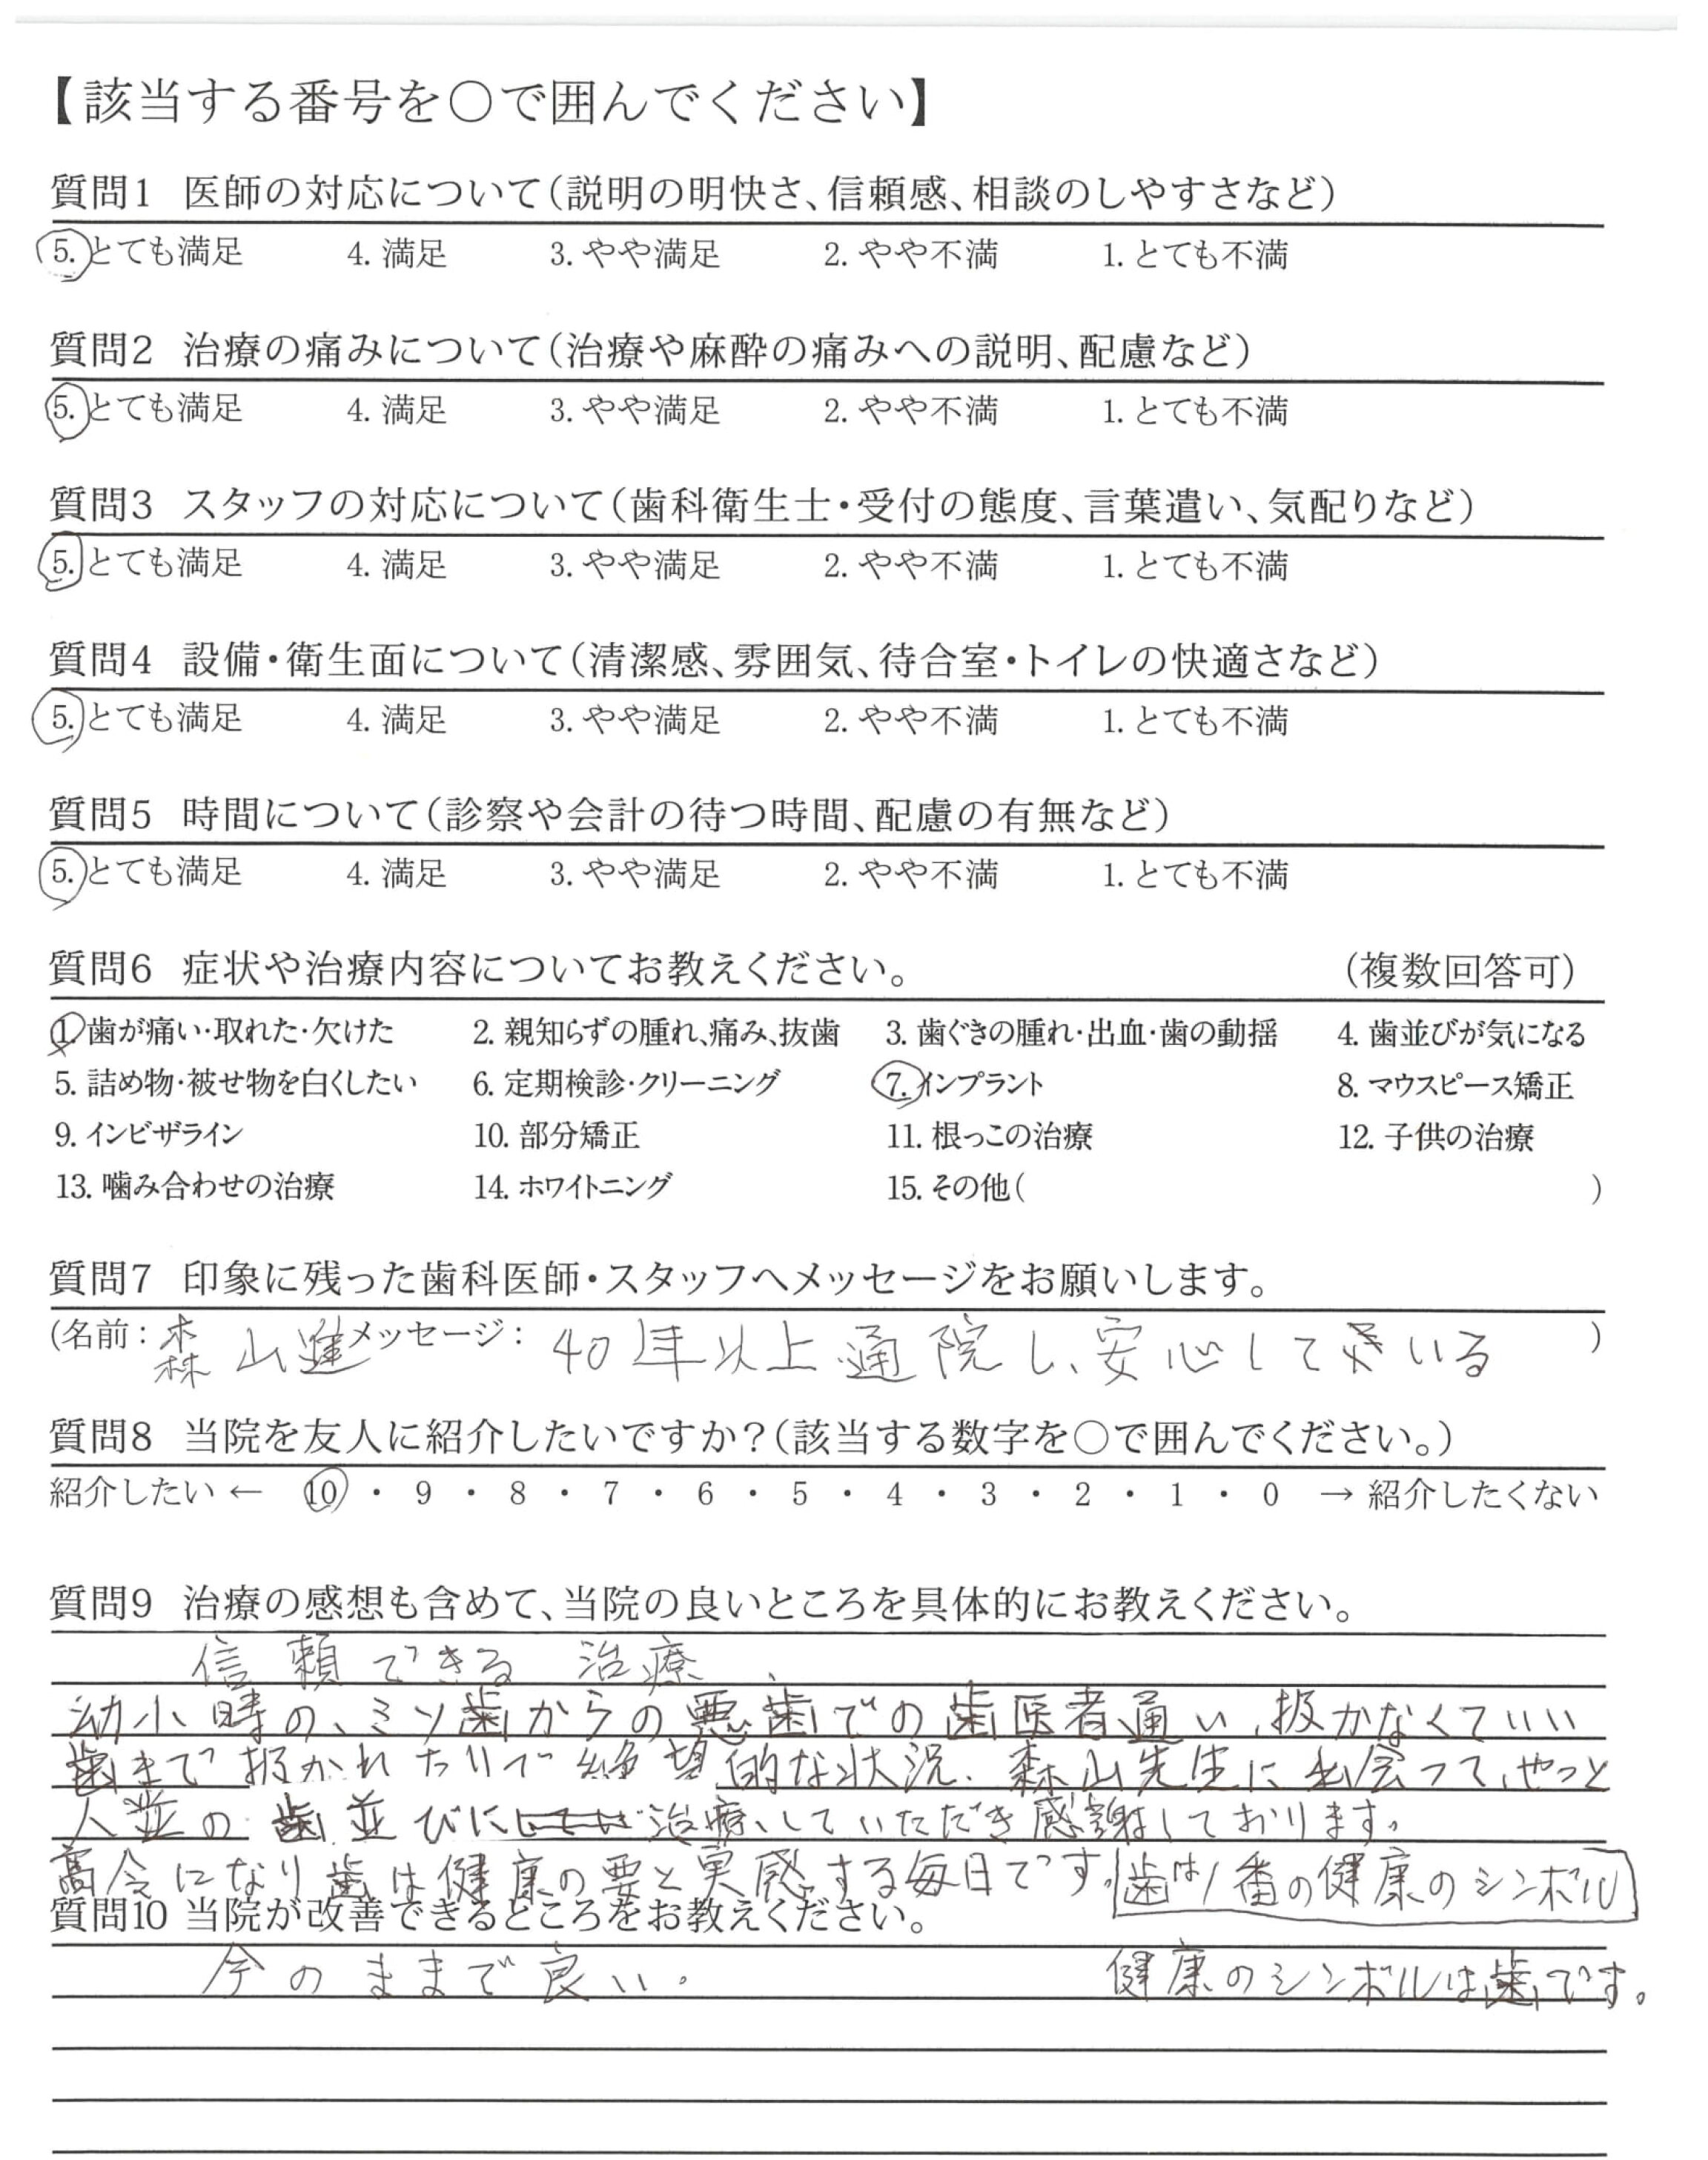 【該当する番号を○で囲んでください】
質問1 医師の対応について（説明の明快さ、信頼感、相談のしやすさなど）
5. とても満足 4. 満足 3. やや満足 2. やや不満 1. とても不満
質問2 治療の痛みについて（治療や麻酔の痛みへの説明、配慮など）
5. とても満足 4. 満足 3. やや満足 2. やや不満 1. とても不満
質問3 スタッフの対応について（歯科衛生士・受付の態度、言葉遣い、気配りなど）
5. とても満足 4. 満足 3. やや満足 2. やや不満 1. とても不満
質問4 設備・衛生面について（清潔感、雰囲気、待合室・トイレの快適さなど）
5. とても満足 4. 満足 3. やや満足 2. やや不満 1. とても不満
質問5 時間について（診察や会計の待つ時間、配慮の有無など）
5. とても満足 4. 満足 3. やや満足 2. やや不満 1. とても不満
質問6 症状や治療内容についてお教えください。 （複数回答可）
1. 歯が痛い・取れた・欠けた 2. 親知らずの腫れ、痛み、抜歯 3. 歯ぐきの腫れ・出血・歯の動揺 4. 歯並びが気になる
5. 詰め物・被せ物を白くしたい 6. 定期検診・クリーニング 7. インプラント 8. マウスピース矯正
9. インビザライン 10. 部分矯正 11. 根っこの治療 12. 子供の治療
13. 噛み合わせの治療 14. ホワイトニング 15. その他（ ）
質問7 印象に残った歯科医師・スタッフへメッセージをお願いします。
（名前：森山進 メッセージ：40年以上通院し、安心している ）
質問8 当院を友人に紹介したいですか？（該当する数字を○で囲んでください。）
紹介したい ← 10 ・ 9 ・ 8 ・ 7 ・ 6 ・ 5 ・ 4 ・ 3 ・ 2 ・ 1 ・ 0 → 紹介したくない
質問9 治療の感想も含めて、当院の良いところを具体的にお教えください。
信頼できる 治療
幼小時の、ミソ歯からの悪歯での歯医者通い、扱かなくていい
歯まで扱かれたりで絶望的な状況、森山先生に出会って、やっと
人並の歯並びに治療していただき感謝しております。
高令になり歯は健康の要と実感する毎日です。歯は1番の健康のシンボル
質問10 当院が改善できるところをお教えください。
今のままで良い。 健康のシンボルは歯です。